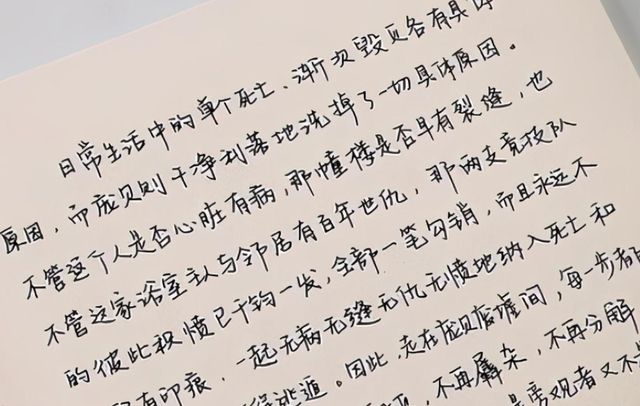 日常生活中的单个死亡、渐次毁灭各有具体
原因，而庞贝则干净利落地洗掉了一切具体原因。
不管这个人是否心脏有病，那幢楼是否早有裂缝，也
不管这家浴室主人与邻居有百年世仇，那两支竞技队
的彼此积愤已千钧一发，全部一笔勾销，而且永远不
有印痕，一起无病无缝无仇无愤地纳入死亡和
逃遁。因此，走在庞贝废墟间，每一步都
，不再羼杂，不再分解
是旁观者又不